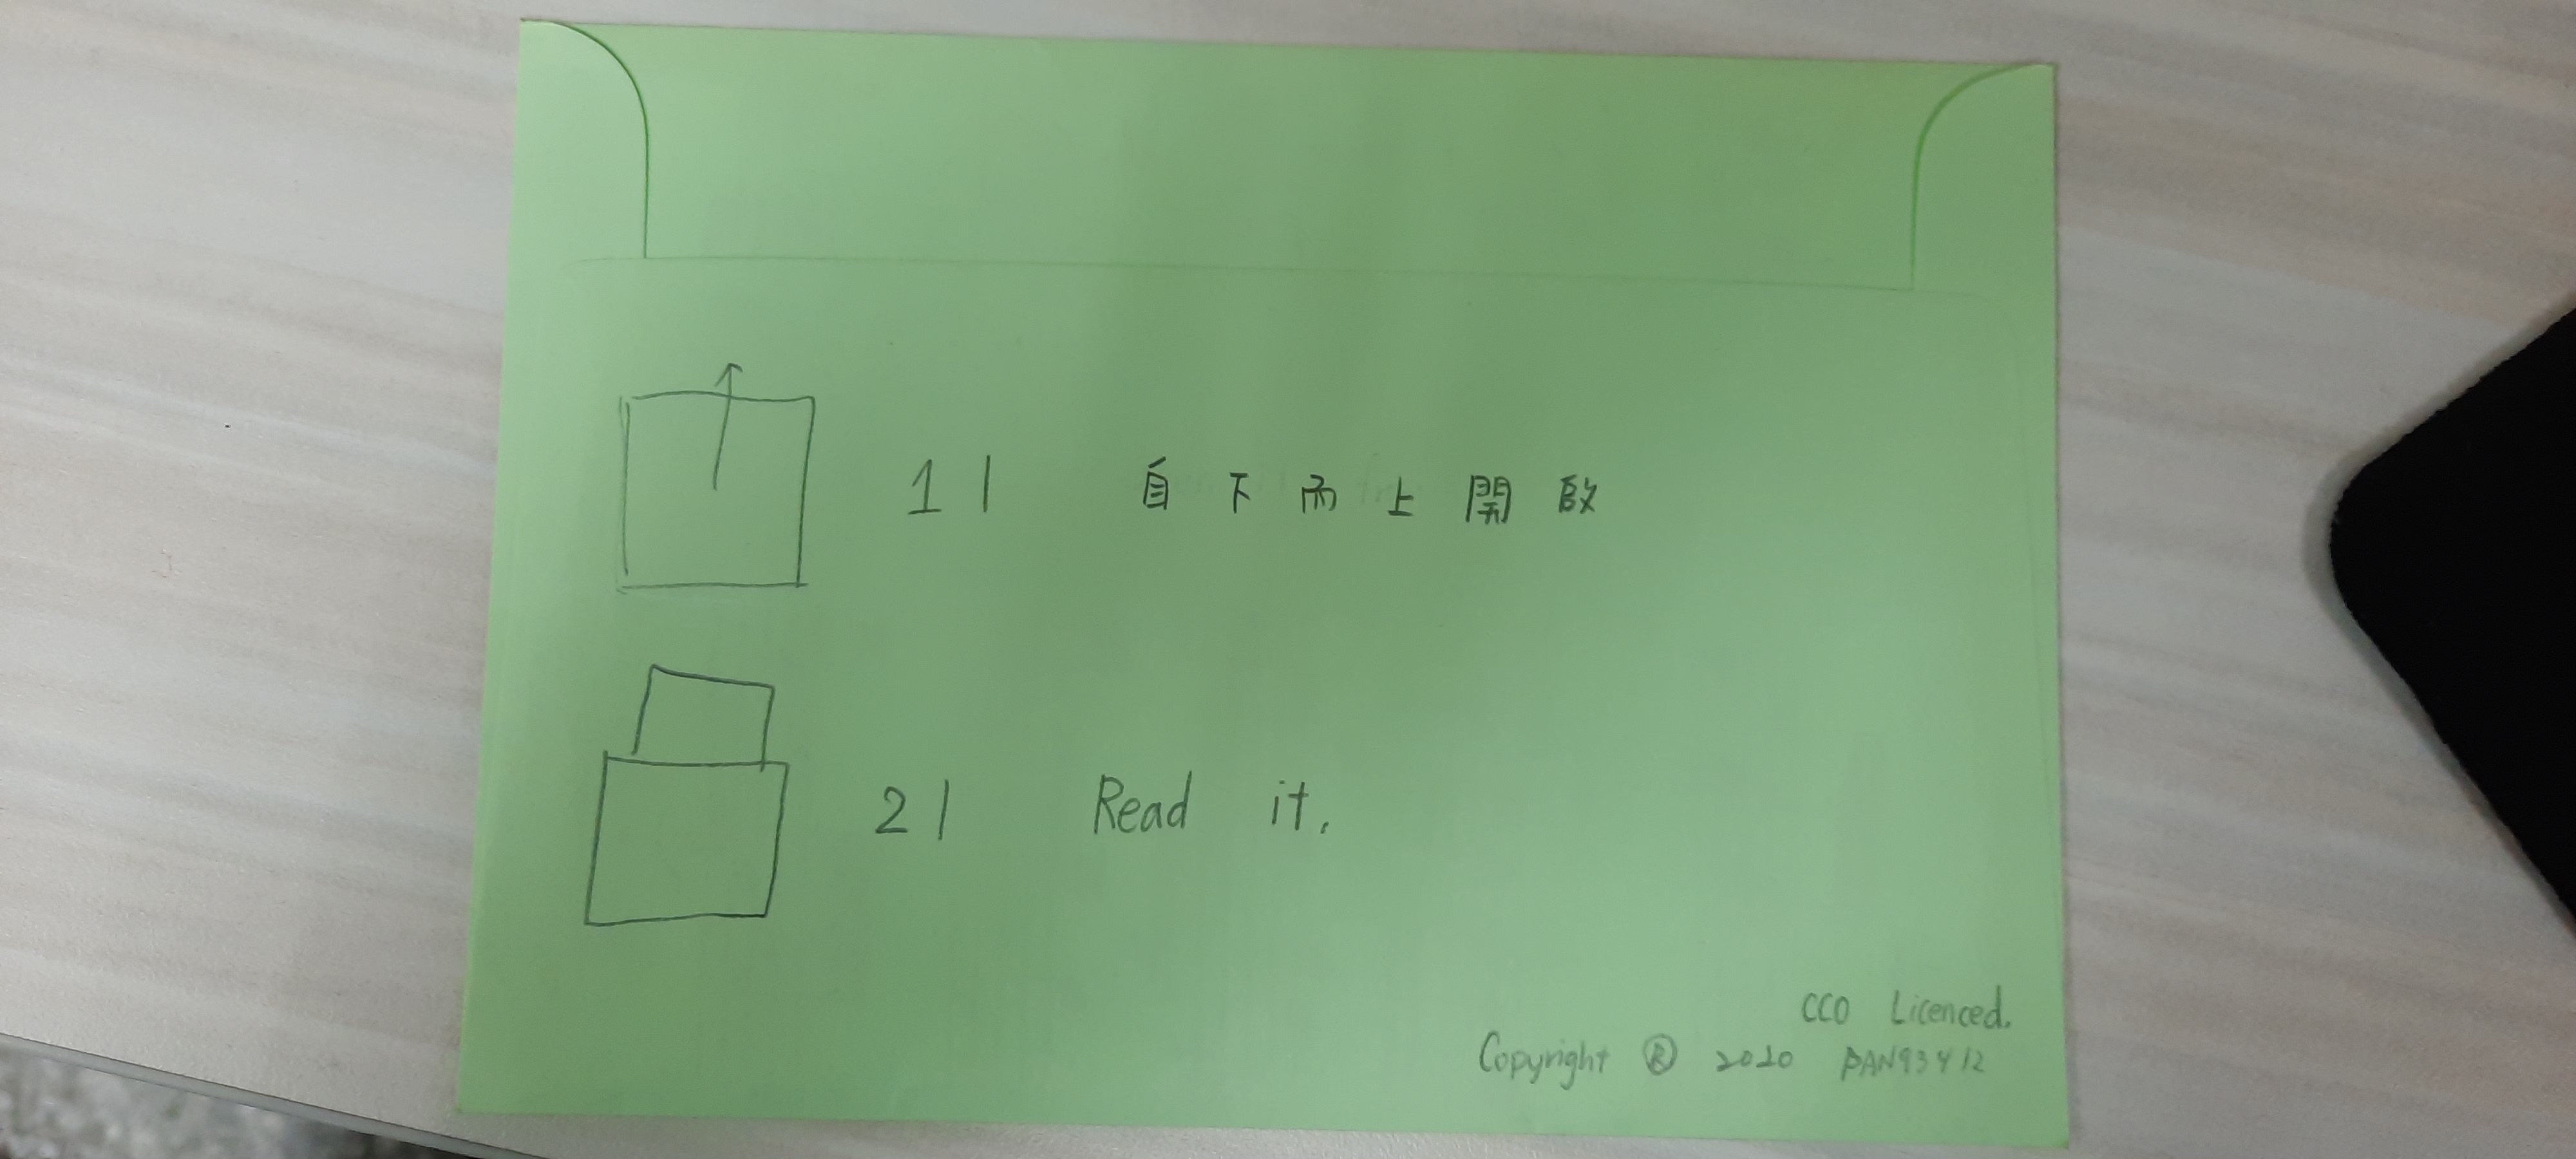 1| 自下而上開啟
2| Read it.
CC0 Licenced.
Copyright ® 2020 PAN93412